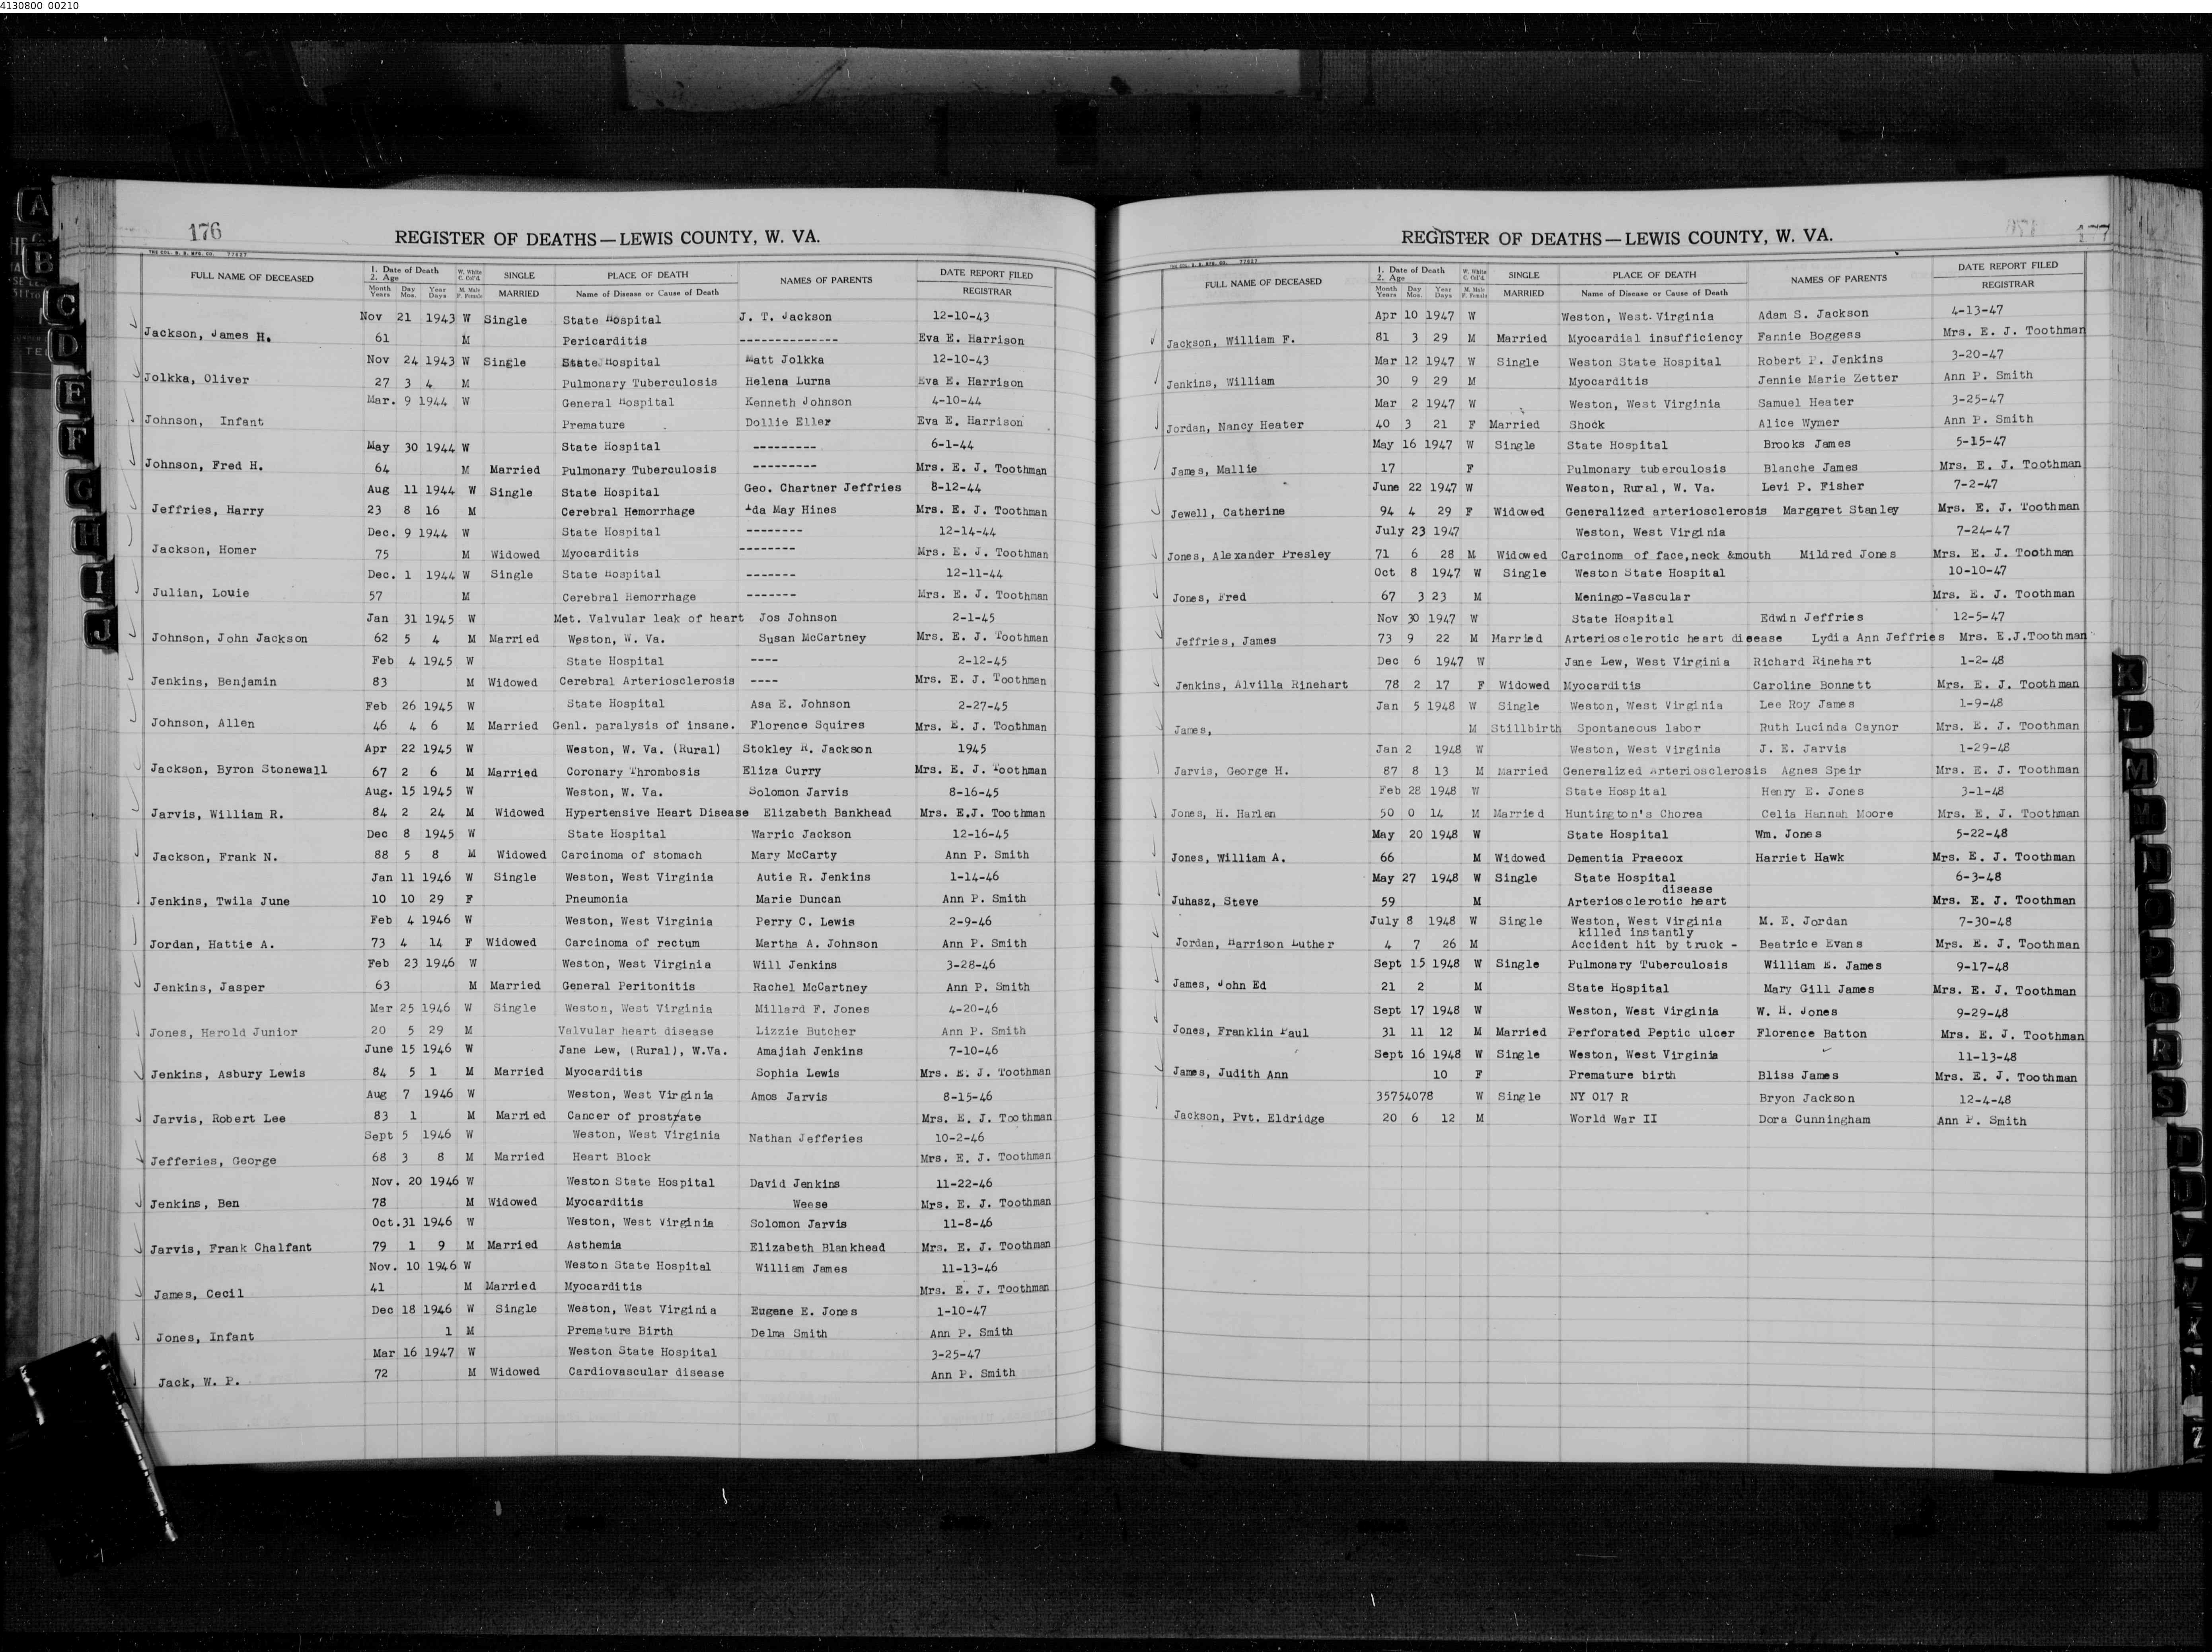 4130800_00210
176
REGISTER OF DEATHS—LEWIS COUNTY, W. VA.
FULL NAME OF DECEASED 1. Date of Death 2. Age W. White C. Col'd. SINGLE PLACE OF DEATH NAMES OF PARENTS DATE REPORT FILED
Month Years Day Mos. Year Days M. Male F. Female MARRIED Name of Disease or Cause of Death REGISTRAR
Nov 21 1943 W Single State Hospital J. T. Jackson 12-10-43
Jackson, James H. 61 M Pericarditis -------------- Eva E. Harrison
Nov 24 1943 W Single State Hospital Matt Jolkka 12-10-43
Jolkka, Oliver 27 3 4 M Pulmonary Tuberculosis Helena Lurna Eva E. Harrison
Mar. 9 1944 W General Hospital Kenneth Johnson 4-10-44
Johnson, Infant Premature Dollie Eller Eva E. Harrison
May 30 1944 W State Hospital --------- 6-1-44
Johnson, Fred H. 64 M Married Pulmonary Tuberculosis --------- Mrs. E. J. Toothman
Aug 11 1944 W Single State Hospital Geo. Chartner Jeffries 8-12-44
Jeffries, Harry 23 8 16 M Cerebral Hemorrhage Ida May Hines Mrs. E. J. Toothman
Dec. 9 1944 W State Hospital -------- 12-14-44
Jackson, Homer 75 M Widowed Myocarditis -------- Mrs. E. J. Toothman
Dec. 1 1944 W Single State Hospital ------- 12-11-44
Julian, Louie 57 M Cerebral Hemorrhage ------- Mrs. E. J. Toothman
Jan 31 1945 W Met. Valvular leak of heart Jos Johnson 2-1-45
Johnson, John Jackson 62 5 4 M Married Weston, W. Va. Susan McCartney Mrs. E. J. Toothman
Feb 4 1945 W State Hospital ---- 2-12-45
Jenkins, Benjamin 83 M Widowed Cerebral Arteriosclerosis ---- Mrs. E. J. Toothman
Feb 26 1945 W State Hospital Asa E. Johnson 2-27-45
Johnson, Allen 46 4 6 M Married Genl. paralysis of insane. Florence Squires Mrs. E. J. Toothman
Apr 22 1945 W Weston, W. Va. (Rural) Stokley R. Jackson 1945
Jackson, Byron Stonewall 67 2 6 M Married Coronary Thrombosis Eliza Curry Mrs. E. J. Toothman
Aug. 15 1945 W Weston, W. Va. Solomon Jarvis 8-16-45
Jarvis, William R. 84 2 24 M Widowed Hypertensive Heart Disease Elizabeth Bankhead Mrs. E.J. Toothman
Dec 8 1945 W State Hospital Warric Jackson 12-16-45
Jackson, Frank N. 88 5 8 M Widowed Carcinoma of stomach Mary McCarty Ann P. Smith
Jan 11 1946 W Single Weston, West Virginia Autie R. Jenkins 1-14-46
Jenkins, Twila June 10 10 29 F Pneumonia Marie Duncan Ann P. Smith
Feb 4 1946 W Weston, West Virginia Perry C. Lewis 2-9-46
Jordan, Hattie A. 73 4 14 F Widowed Carcinoma of rectum Martha A. Johnson Ann P. Smith
Feb 23 1946 W Weston, West Virginia Will Jenkins 3-28-46
Jenkins, Jasper 63 M Married General Peritonitis Rachel McCartney Ann P. Smith
Mar 25 1946 W Single Weston, West Virginia Millard F. Jones 4-20-46
Jones, Harold Junior 20 5 29 M Valvular heart disease Lizzie Butcher Ann P. Smith
June 15 1946 W Jane Lew, (Rural), W.Va. Amajiah Jenkins 7-10-46
Jenkins, Asbury Lewis 84 5 1 M Married Myocarditis Sophia Lewis Mrs. E. J. Toothman
Aug 7 1946 W Weston, West Virginia Amos Jarvis 8-15-46
Jarvis, Robert Lee 83 1 M Married Cancer of prostrate Mrs. E. J. Toothman
Sept 5 1946 W Weston, West Virginia Nathan Jefferies 10-2-46
Jefferies, George 68 3 8 M Married Heart Block Mrs. E. J. Toothman
Nov. 20 1946 W Weston State Hospital David Jenkins 11-22-46
Jenkins, Ben 78 M Widowed Myocarditis Weese Mrs. E. J. Toothman
Oct.31 1946 W Weston, West Virginia Solomon Jarvis 11-8-46
Jarvis, Frank Chalfant 79 1 9 M Married Asthemia Elizabeth Blankhead Mrs. E. J. Toothman
Nov. 10 1946 W Weston State Hospital William James 11-13-46
James, Cecil 41 M Married Myocarditis Mrs. E. J. Toothman
Dec 18 1946 W Single Weston, West Virginia Eugene E. Jones 1-10-47
Jones, Infant 1 M Premature Birth Delma Smith Ann P. Smith
Mar 16 1947 W Weston State Hospital 3-25-47
Jack, W. P. 72 M Widowed Cardiovascular disease Ann P. Smith
177
REGISTER OF DEATHS—LEWIS COUNTY, W. VA.
FULL NAME OF DECEASED 1. Date of Death 2. Age W. White C. Col'd. SINGLE PLACE OF DEATH NAMES OF PARENTS DATE REPORT FILED
Month Years Day Mos. Year Days M. Male F. Female MARRIED Name of Disease or Cause of Death REGISTRAR
Apr 10 1947 W Weston, West Virginia Adam S. Jackson 4-13-47
Jackson, William F. 81 3 29 M Married Myocardial insufficiency Fannie Boggess Mrs. E. J. Toothman
Mar 12 1947 W Single Weston State Hospital Robert P. Jenkins 3-20-47
Jenkins, William 30 9 29 M Myocarditis Jennie Marie Zetter Ann P. Smith
Mar 2 1947 W Weston, West Virginia Samuel Heater 3-25-47
Jordan, Nancy Heater 40 3 21 F Married Shock Alice Wymer Ann P. Smith
May 16 1947 W Single State Hospital Brooks James 5-15-47
James, Mallie 17 F Pulmonary tuberculosis Blanche James Mrs. E. J. Toothman
June 22 1947 W Weston, Rural, W. Va. Levi P. Fisher 7-2-47
Jewell, Catherine 94 4 29 F Widowed Generalized arteriosclerosis Margaret Stanley Mrs. E. J. Toothman
July 23 1947 Weston, West Virginia 7-24-47
Jones, Alexander Presley 71 6 28 M Widowed Carcinoma of face,neck &mouth Mildred Jones Mrs. E. J. Toothman
Oct 8 1947 W Single Weston State Hospital 10-10-47
Jones, Fred 67 3 23 M Meningo-Vascular Mrs. E. J. Toothman
Nov 30 1947 W State Hospital Edwin Jeffries 12-5-47
Jeffries, James 73 9 22 M Married Arteriosclerotic heart disease Lydia Ann Jeffries Mrs. E.J.Toothman
Dec 6 1947 W Jane Lew, West Virginia Richard Rinehart 1-2-48
Jenkins, Alvilla Rinehart 78 2 17 F Widowed Myocarditis Caroline Bonnett Mrs. E. J. Toothman
Jan 5 1948 W Single Weston, West Virginia Lee Roy James 1-9-48
James, M Stillbirth Spontaneous labor Ruth Lucinda Caynor Mrs. E. J. Toothman
Jan 2 1948 W Weston, West Virginia J. E. Jarvis 1-29-48
Jarvis, George H. 87 8 13 M Married Generalized Arteriosclerosis Agnes Speir Mrs. E. J. Toothman
Feb 28 1948 W State Hospital Henry E. Jones 3-1-48
Jones, H. Harlan 50 0 14 M Married Huntington's Chorea Celia Hannah Moore Mrs. E. J. Toothman
May 20 1948 W State Hospital Wm. Jones 5-22-48
Jones, William A. 66 M Widowed Dementia Praecox Harriet Hawk Mrs. E. J. Toothman
May 27 1948 W Single State Hospital 6-3-48
disease
Juhasz, Steve 59 M Arteriosclerotic heart Mrs. E. J. Toothman
July 8 1948 W Single Weston, West Virginia M. E. Jordan 7-30-48
killed instantly
Jordan, Harrison Luther 4 7 26 M Accident hit by truck - Beatrice Evans Mrs. E. J. Toothman
Sept 15 1948 W Single Pulmonary Tuberculosis William E. James 9-17-48
James, John Ed 21 2 M State Hospital Mary Gill James Mrs. E. J. Toothman
Sept 17 1948 W Weston, West Virginia W. H. Jones 9-29-48
Jones, Franklin Paul 31 11 12 M Married Perforated Peptic ulcer Florence Batton Mrs. E. J. Toothman
Sept 16 1948 W Single Weston, West Virginia 11-13-48
James, Judith Ann 10 F Premature birth Bliss James Mrs. E. J. Toothman
35754078 W Single NY 017 R Bryon Jackson 12-4-48
Jackson, Pvt. Eldridge 20 6 12 M World War II Dora Cunningham Ann P. Smith
A
B
C
D
E
F
G
H
I
J
K
L
M
Mc
N
O
P
Q
R
S
T
U
V
W
Z